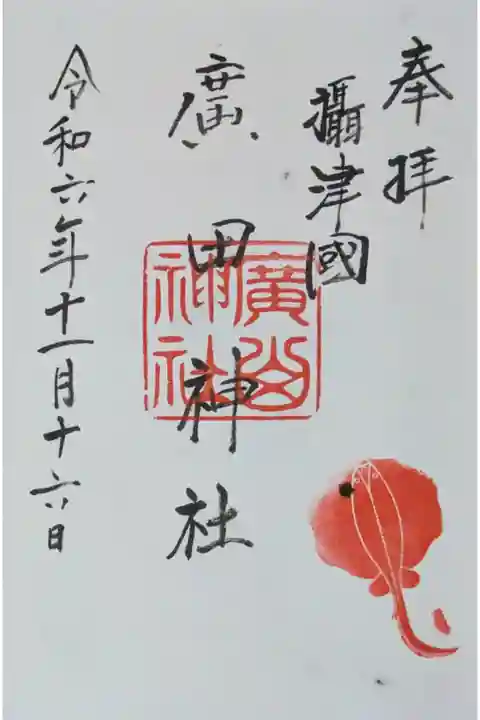 奉拝
攝津國
廣田神社
廣田
神社
令和六年十一月十六日